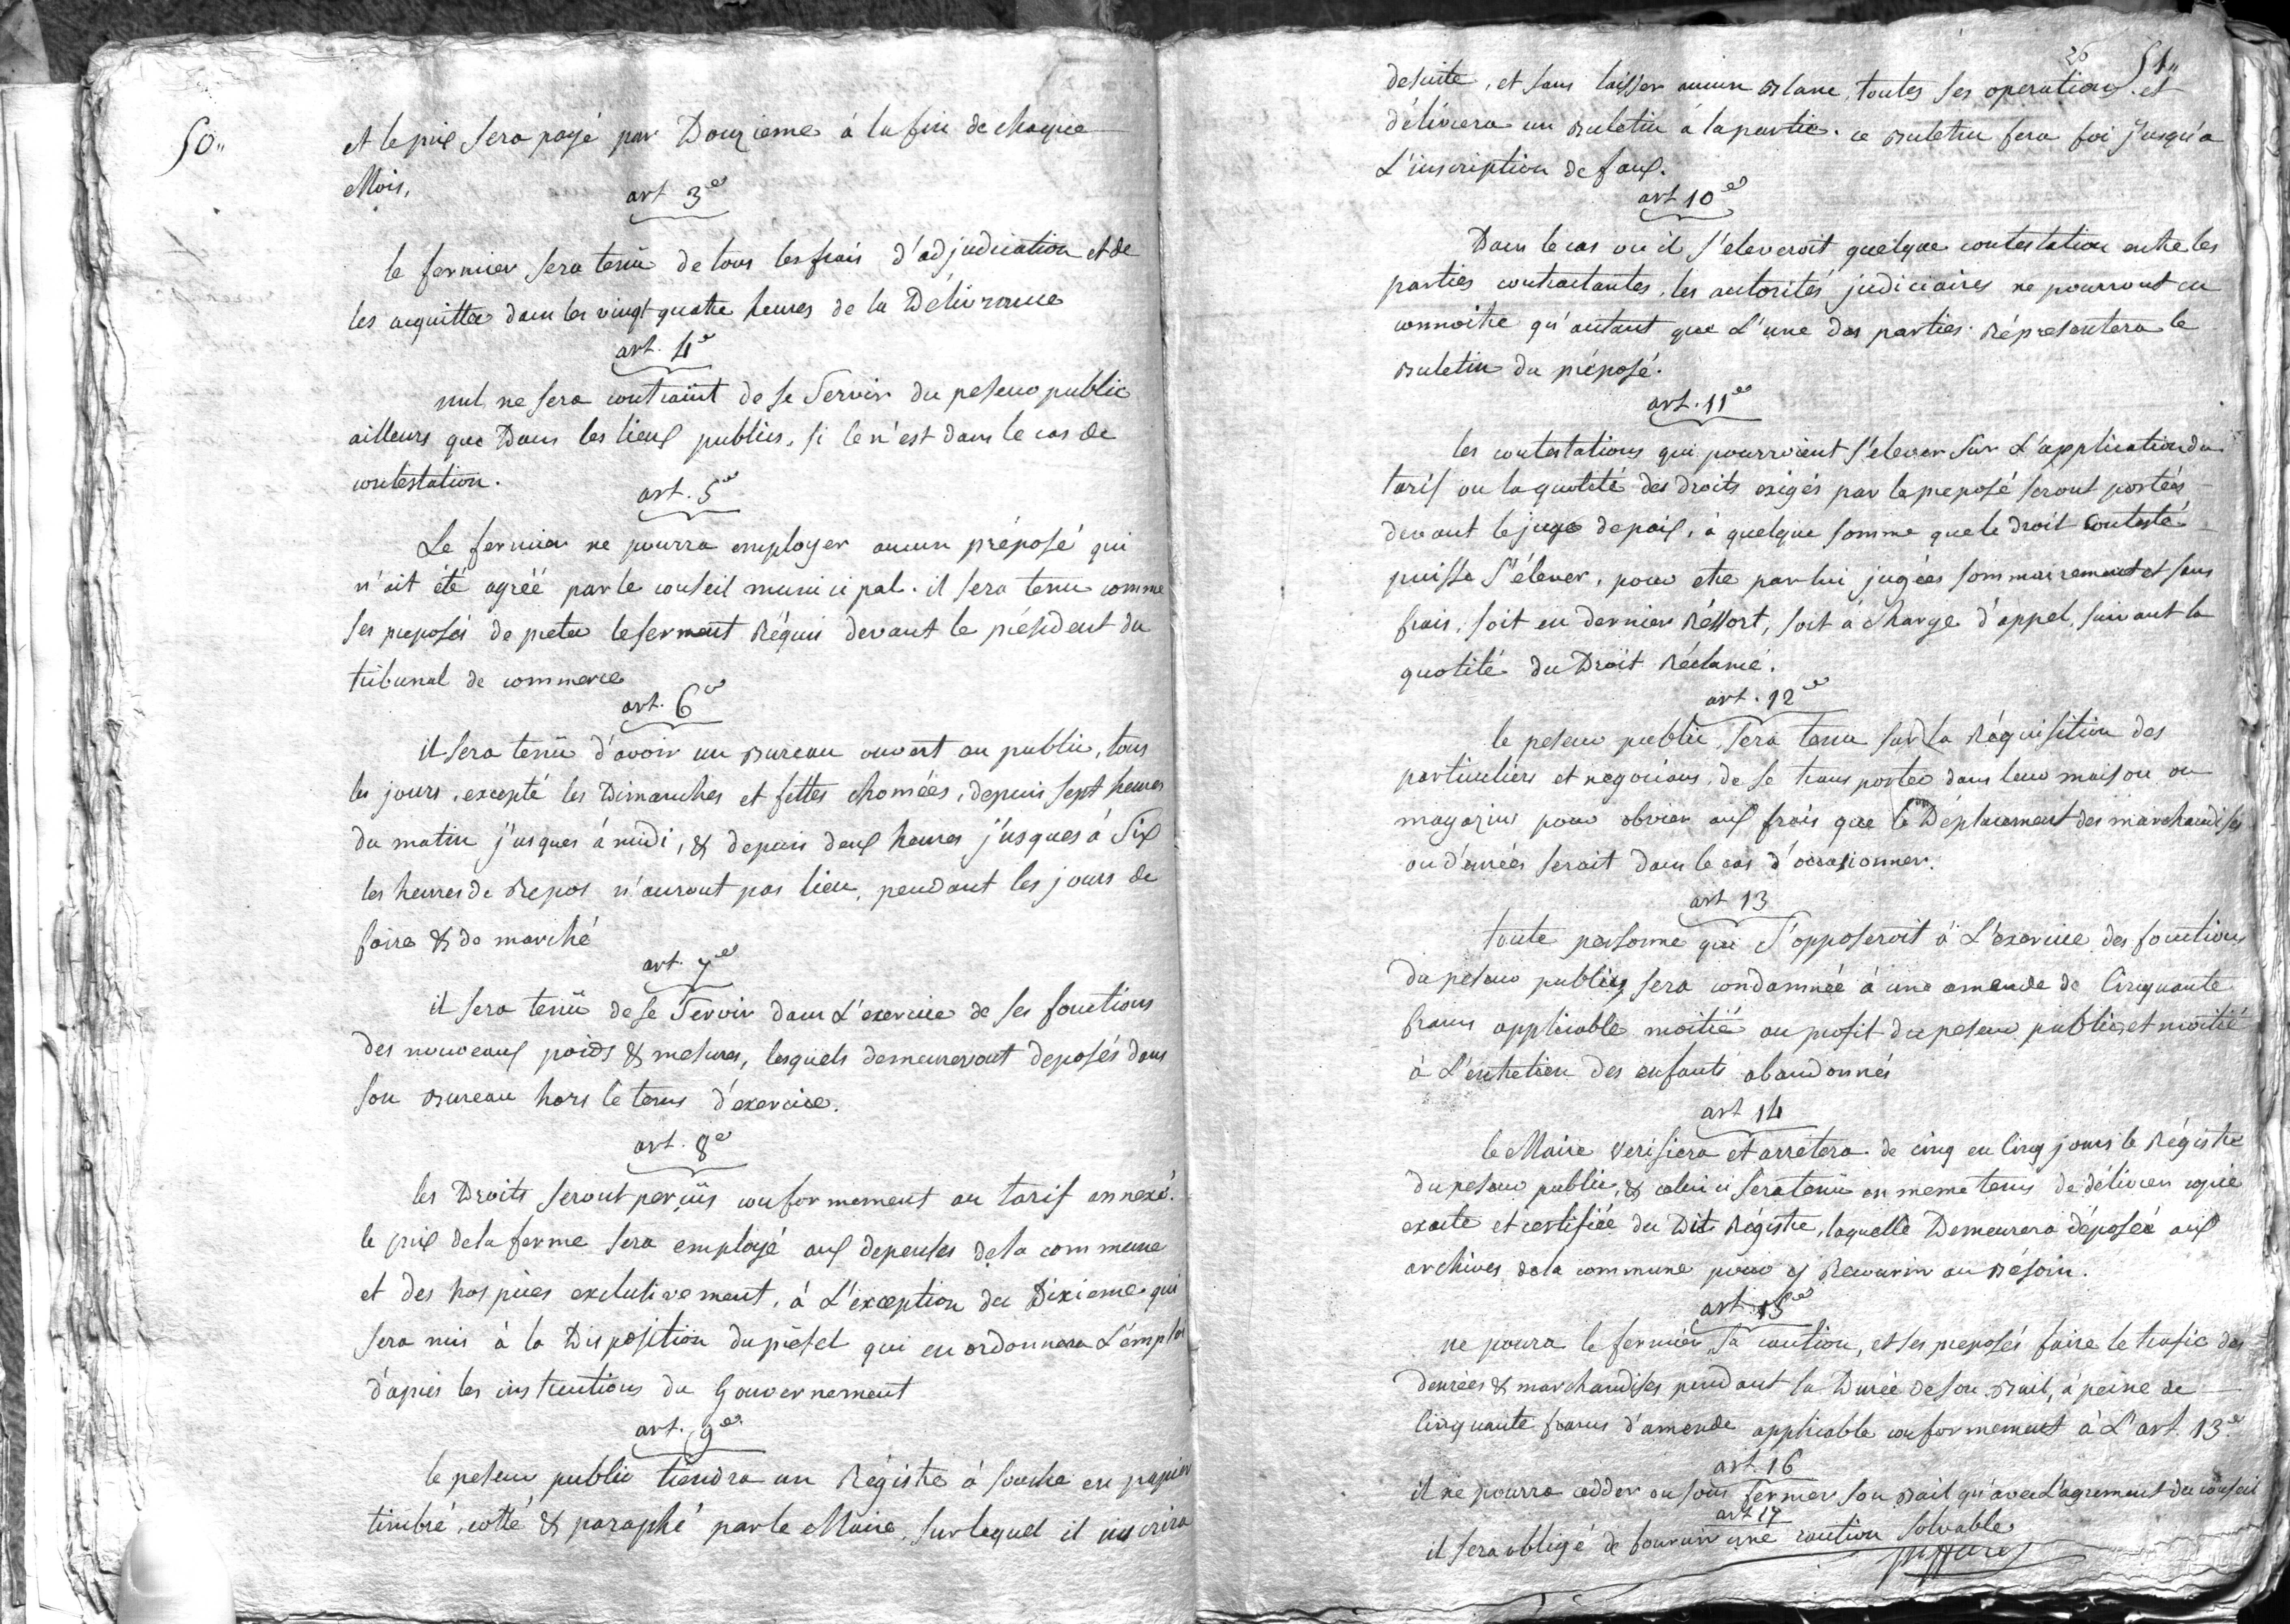 50"
et le prix sera payé par Douzieme à la fin de chaque
Mois,
art 3e
le fermier sera tenü de tous les frais d'adjudication et de
les acquitter dans les vingt quatre heures de la Délivrance
art. 4e
nul ne sera contraint de se Servir du peseur public
ailleurs que Dans les lieux publics, si ce n'est dans le cas de
contestation.
art. 5e
Le fermier ne pourra employer aucun préposé qui
n'ait été agréé par le conseil municipal. il sera tenu comme
ses preposés de preter le serment Réquis devant le président du
tribunal de commerce
art. 6e
il sera tenü d'avoir un Bureau ouvert au public, tous
les jours, excepté les Dimanches et fettes chomées, depuis sept heures
du matin j'usques à midi, & depuis deux heures j'usques à Six
les heures de Repos n'auront pas lieu, pendant les jours de
foire & de marché
art. 7e
il sera tenü de se Servir dans L'exercice de ses fonctions
des nouveaux poids & mesures, lesquels demeureront deposés dans
son Bureau hors le tems d'exercice.
art. 8e
les Droits seront perçüs conformement au tarif annexé.
le prix de la ferme sera employé aux depenses de la commune
et des hospices exclusivement, à L'exception du Dixieme qui
sera mis à la Disposition du préfet qui en ordonnera L'emploi
d'après les instructions du Gouvernement
art. 9e
le peseur public tiendra un Régistre à souche en papier
timbré, cotté & paraphé par le Maire, sur lequel il inscrira
26 51"
desuite, et sans laisser aucun Blanc, toutes ses operations et
délivrera un Buletin à la partie. ce Buletin fera foi jusqu'a
L'inscription de faux.
art 10e
Dans le cas ou il s'eleveroit quelque contestation entre les
parties contractantes, les autorités judiciaires ne pourront en
connoitre qu'autant que L'une des parties Répresentera le
Buletin du préposé.
art. 11e
les contestations qui pourroient s'élever sur L'application du
tarif ou la quotité des droits exigés par le preposé seront portées
devant le juge de paix, à quelque somme que le droit Contesté
puisse S'élever, pour etre par lui jugées sommairement et sans
frais, soit en dernier Réssort, soit à charge d'appel, suivant la
quotité du Droit Réclamé.
art. 12e
le peseur public, sera tenu sur la Réquisition des
particuliers et negocians, de se transporter dans leur maison ou
magazin pour obvier aux frais que le Déplacement des marchandises
ou denrées serait dans le cas d'occasionner.
art 13
toute personne qui S'opposeroit à L'exercice des fonctions
du peseur public, sera condamnée à une amende de Cinquante
francs applicable moitié au profit du peseur public, et moitié
à L'entretien des enfants abandonnés
art 14
le Maire verifiera et arretera de cinq en Cinq jours le Régistre
du peseur public, & celui ci sera tenü en meme tems de délivrer copie
exacte et certifiée du Dit Régistre, laquelle Demeurera déposée aux
archives de la commune pour y Recourir au Bésoin.
art 15e
ne pourra le fermier, sa caution, et ses preposés faire le trafic des
denrées & marchandises pendant la Durée de son Bail, à peine de
Cinquante francs d'amende applicable conformement à L'art. 13e
art. 16
il ne pourra cedder ou sous fermer son Bail qu'avec L'agrement du conseil
art 17
il sera obligé de fournir une caution solvable